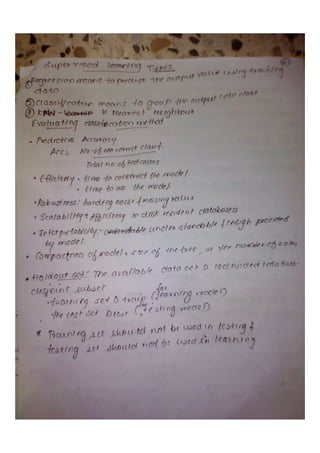 Supervised learning Types
① Regression means to predict the output value using training
data
② classification means to group the output into class
③ KNN - K Nearest Neighbour
Evaluating classification method
• Predictive Accuracy
Acc = No of correct classf.
Total no of test cases
• Efficiency • time to construct the model
• time to use the model.
• Robustness: handing noise & missing value
• Scalability: efficiency in disk resident databases
• Interpretability: understandable & insigh provided
by model.
• Compactness of model: size of the tree, or the number of rules
• Holdout set: The available data set D is divided into two
disjoint subset
• training set D train (for learning model)
• the test set Dtest (for testing model)
* Training set should not be used in testing &
testing set should not be used in learning